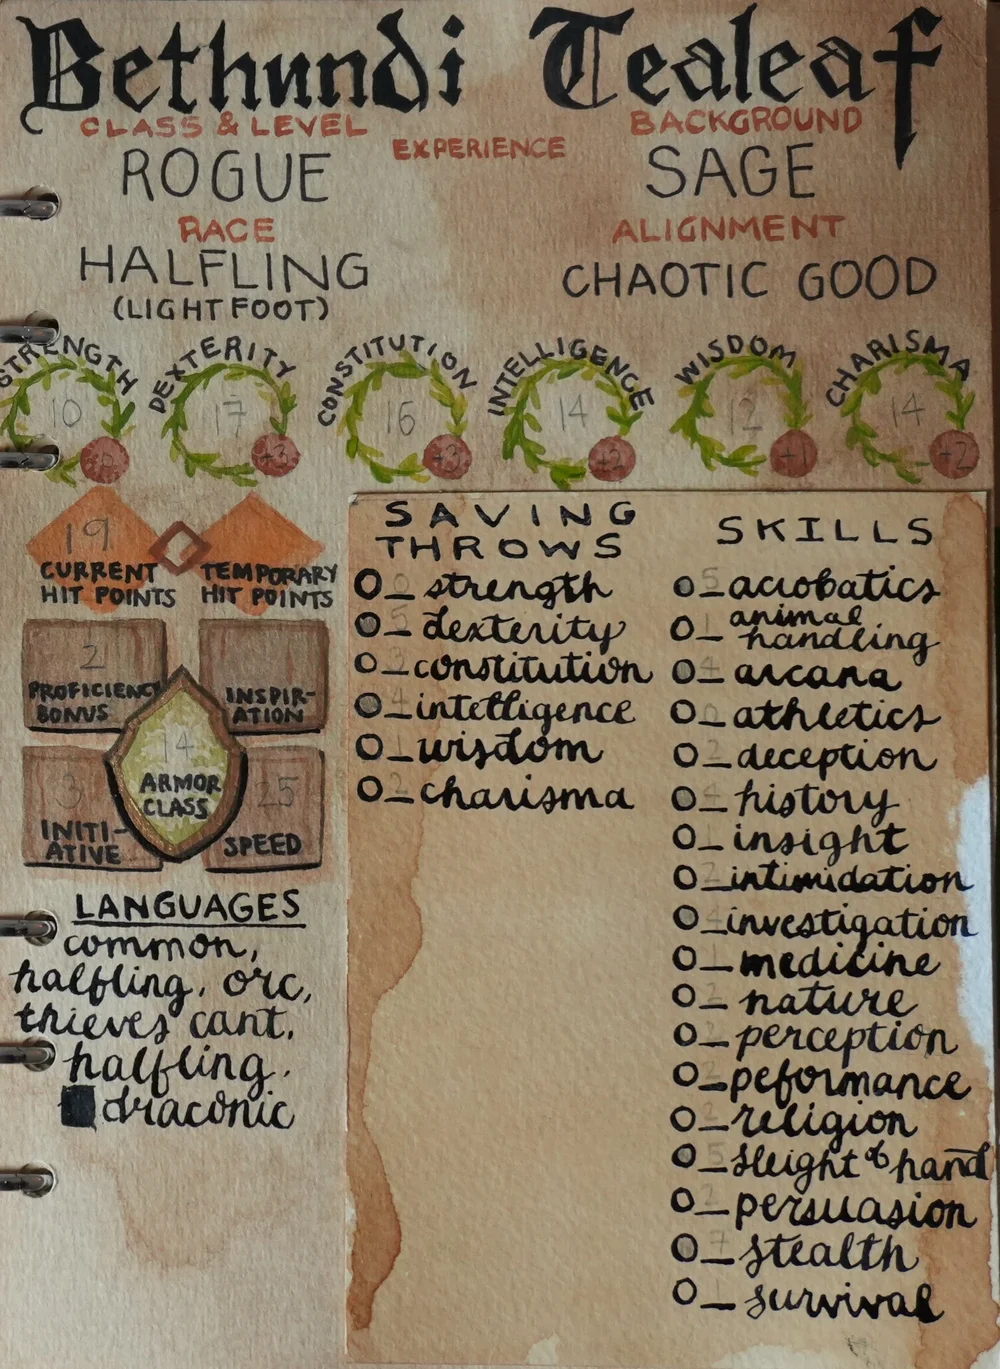 Bethundi Tealeaf
CLASS & LEVEL
BACKGROUND
EXPERIENCE
ROGUE
SAGE
RACE
ALIGNMENT
HALFLING
(LIGHTFOOT)
CHAOTIC GOOD
STRENGTH
DEXTERITY
CONSTITUTION
INTELLIGENCE
WISDOM
CHARISMA
10
17
16
14
12
14
+3
+3
+2
+1
+2
19
CURRENT
HIT POINTS
TEMPORARY
HIT POINTS
2
PROFICIENCY
BONUS
INSPIR-
ATION
14
ARMOR
CLASS
3
INITI-
ATIVE
25
SPEED
LANGUAGES
common,
halfling, orc,
thieves cant,
halfling.
draconic
SAVING
THROWS
0 strength
5 dexterity
3 constitution
4 intelligence
1 wisdom
2 charisma
SKILLS
5 acrobatics
1 animal
handling
4 arcana
0 athletics
2 deception
4 history
1 insight
2 intimidation
4 investigation
1 medicine
2 nature
perception
peformance
2 religion
5 sleight of hand
2 persuasion
7 stealth
survival